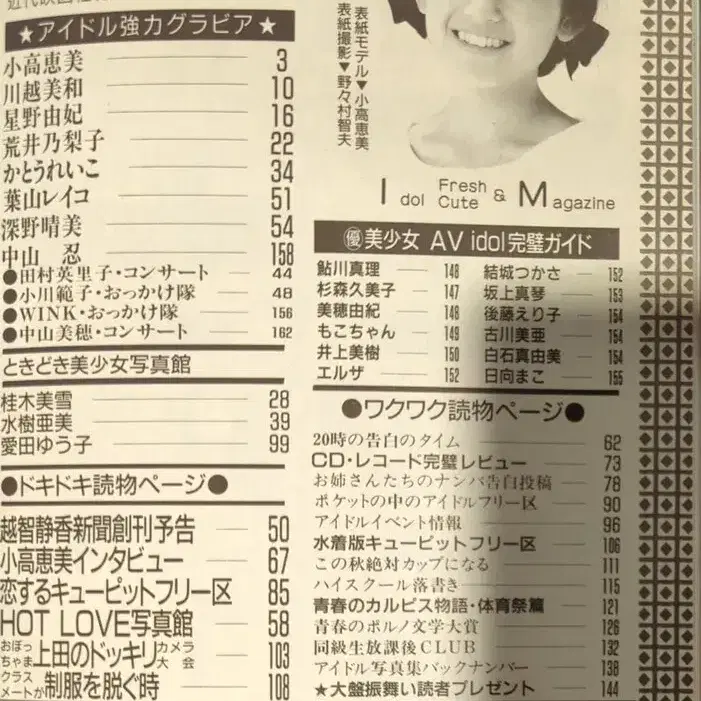 ★アイドル強力グラビア★
小高恵美 3
川越美和 10
星野由妃 16
荒井乃梨子 22
かとうれいこ 34
葉山レイコ 51
深野晴美 54
中山 忍 158
●田村英里子・コンサート 44
●小川範子・おっかけ隊 48
●WINK・おっかけ隊 156
●中山美穂・コンサート 162
ときどき美少女写真館
桂木美雪 28
水樹亜美 39
愛田ゆう子 99
●ドキドキ読物ページ●
越智静香新聞創刊予告 50
小高恵美インタビュー 67
恋するキューピットフリー区 85
HOT LOVE写真館 58
おぼっちゃま上田のドッキリカメラ大会 103
クラスメートが制服を脱ぐ時 108
表紙モデル▼小高恵美
表紙撮影▼野々村智夫
Idol Fresh Cute & Magazine
優美少女 AV idol完璧ガイド
鮎川真理 148
杉森久美子 147
美穂由紀 148
もこちゃん 149
井上美樹 150
エルザ 152
結城つかさ 152
坂上真琴 153
後藤えり子 154
古川美亜 154
白石真由美 154
日向まこ 155
●ワクワク読物ページ●
20時の告白のタイム 62
CD・レコード完璧レビュー 73
お姉さんたちのナンパ告白投稿 78
ポケットの中のアイドルフリー区 90
アイドルイベント情報 96
水着版キューピットフリー区 106
この秋絶対カップになる 111
ハイスクール落書き 115
青春のカルピス物語・体育祭篇 121
青春のポルノ文学大賞 126
同級生放課後CLUB 132
アイドル写真集バックナンバー 138
★大盤振舞い読者プレゼント 144